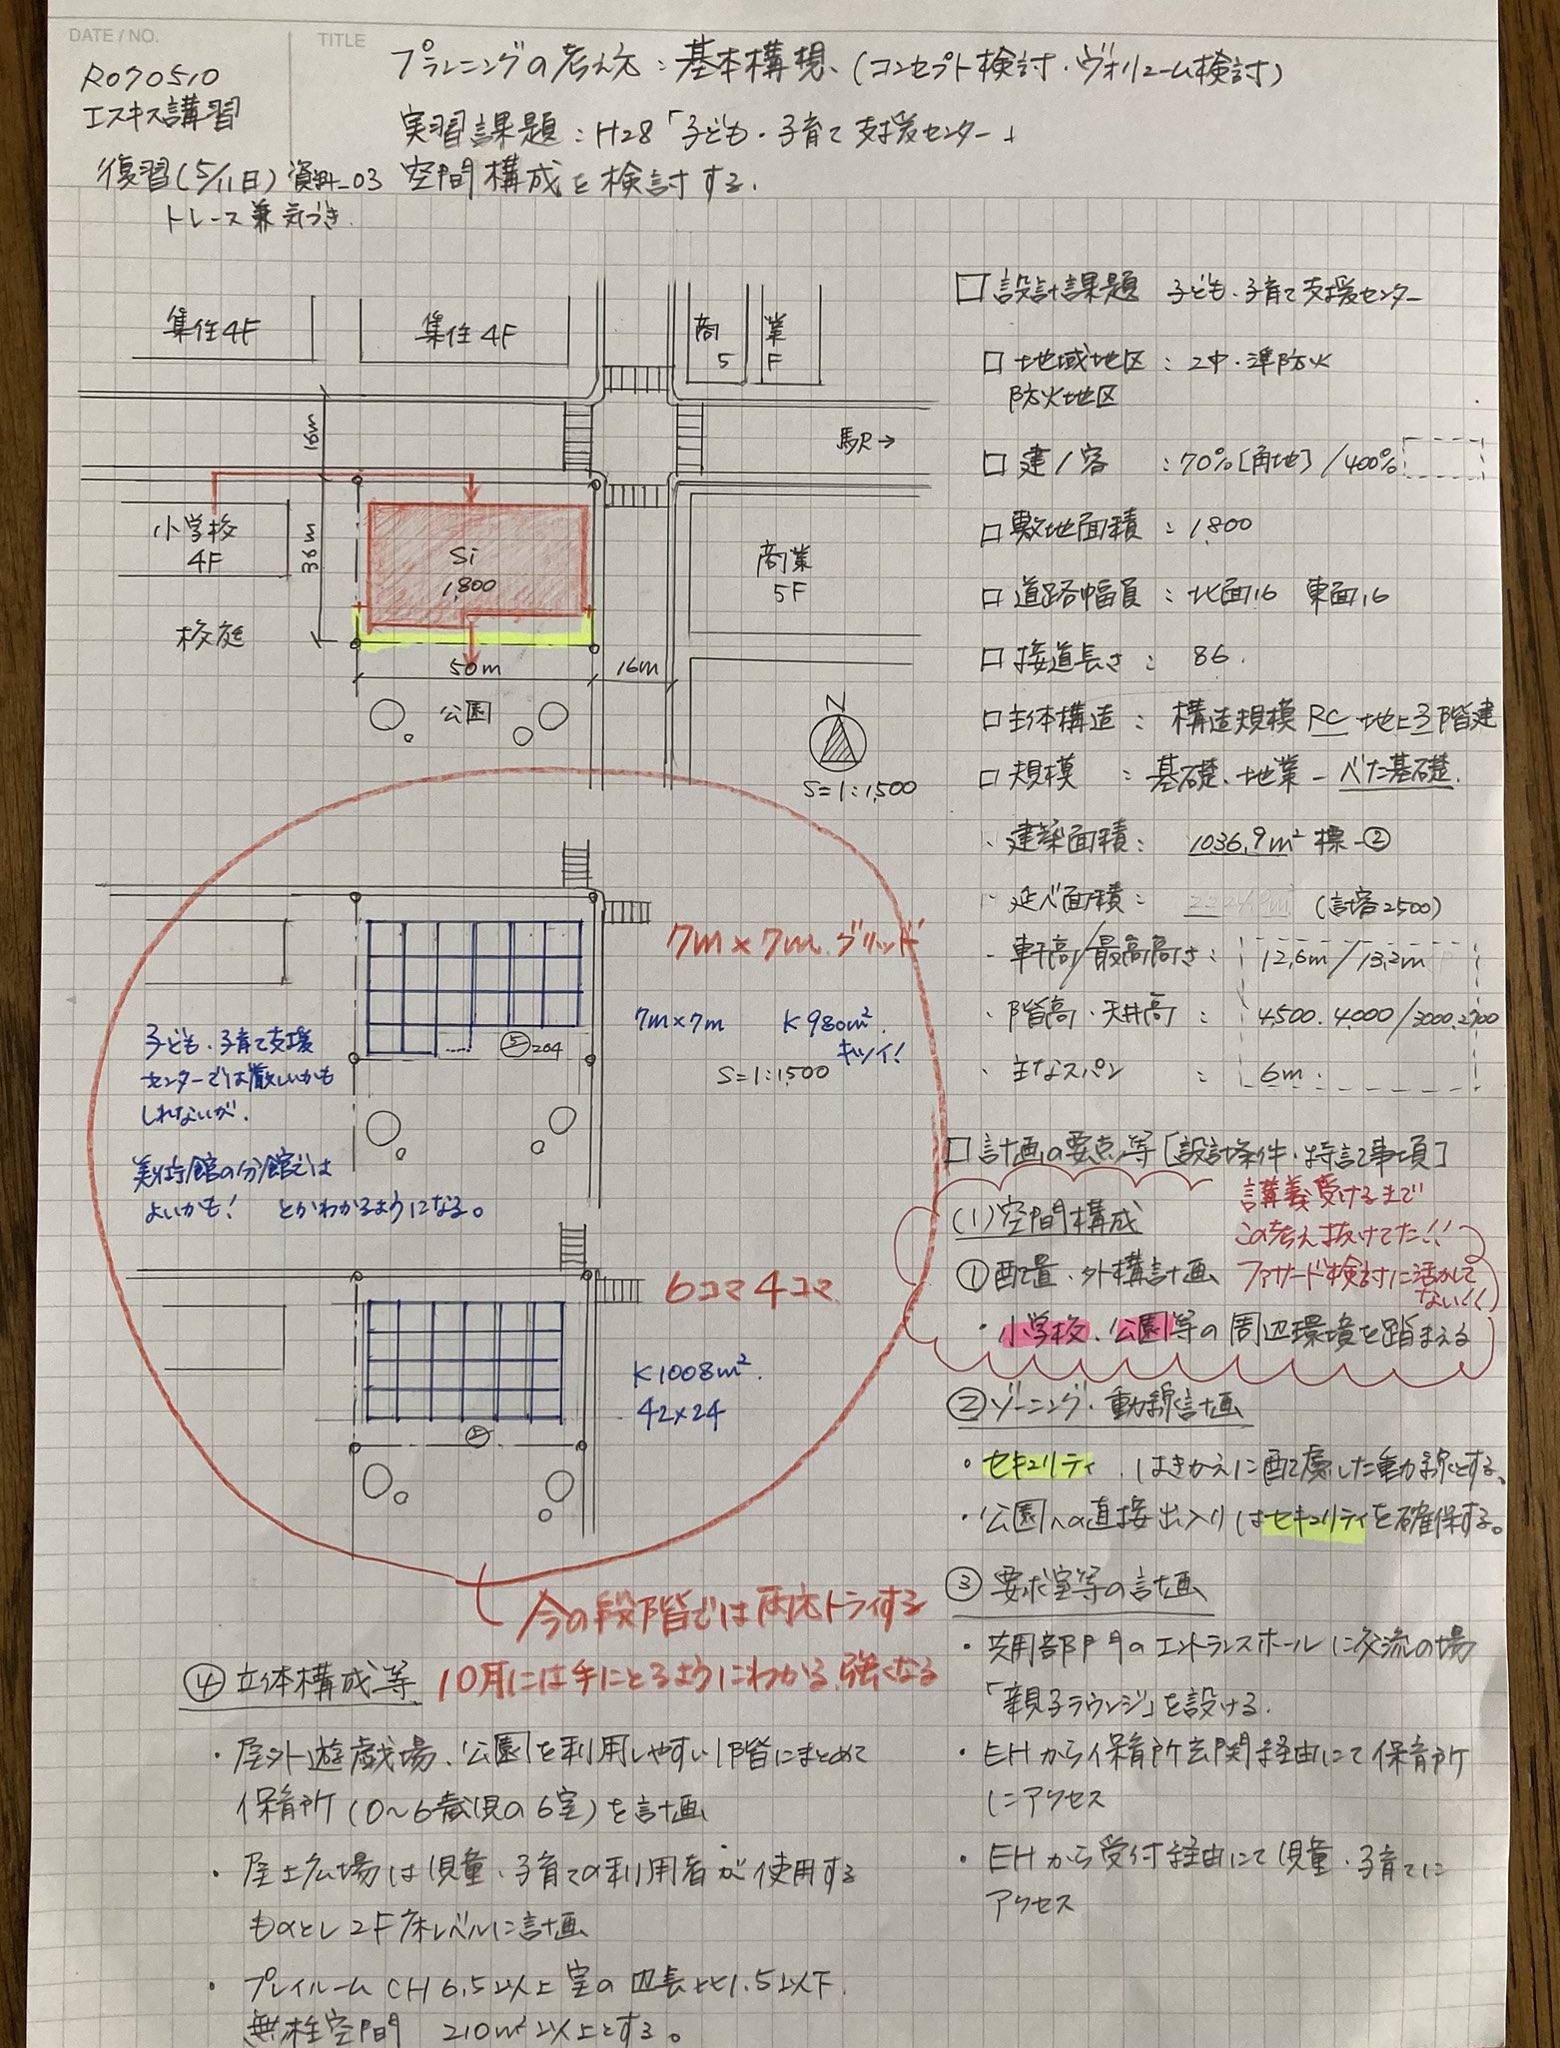 DATE / NO.
TITLE
R070510
エスキス講習
プランニングの考え方：基本構想、(コンセプト検討・ヴォリューム検討)
実習課題：H28「子ども・子育て支援センター」
復習(5/11日) 資料_03 空間構成を検討する.
トレース兼気づき
集住4F
集住4F
商業
5F
16m
駅→
小学校
4F
36m
Si
1,800
商業
5F
校庭
50m
16m
公園
N
S=1:1,500
7m×7m グリッド
7m×7m K980m²
キツイ!
S=1:1500
⑤204
子ども・子育て支援
センターでは厳しいかも
しれないが、
美術館の分館では
よいかも! とかわかるようになる。
6コマ4コマ
K1008m².
42×24
今の段階では両方トライする
10月には手にとるようにわかる.強くなる
④立体構成等
・屋外遊戯場、公園を利用しやすい1階にまとめて
保育所(0〜6歳児の6室)を計画
・屋上広場は児童・子育ての利用者が使用する
ものとし2F床レベルに計画
・プレイルームCH6.5以上室の辺長比1.5以下.
無柱空間 210m²以上とする。
□設計課題 子ども・子育て支援センター
□地域地区：2中・準防火
防火地区
□建/容 ：70%[角地]/400%
□敷地面積：1,800
□道路幅員：北面16 東面16
□接道長さ：86.
□主体構造：構造規模RC地上3階建
□規模 ：基礎、地業－べた基礎.
・建築面積：1036.9m² 標-②
・延べ面積： (計容2500)
・軒高/最高高さ：12.6m/13.2m
・階高・天井高：4,500.4,000/3000.2700
・主なスパン：6m.
□計画の要点等[設計条件・特記事項]
(1)空間構成
講義受けるまで
この考え抜けてた!!
ファサード検討に活かして
ない!!
①配置・外構計画
・小学校、公園等の周辺環境を踏まえる
②ゾーニング・動線計画
・セキュリティ、はきかえに配慮した動線とする。
・公園への直接出入りはセキュリティを確保する。
③要求室等の計画
・共用部門のエントランスホールに交流の場
「親子ラウンジ」を設ける.
・EHから保育所玄関経由にて保育所
にアクセス
・EHから受付経由にて児童・子育てに
アクセス